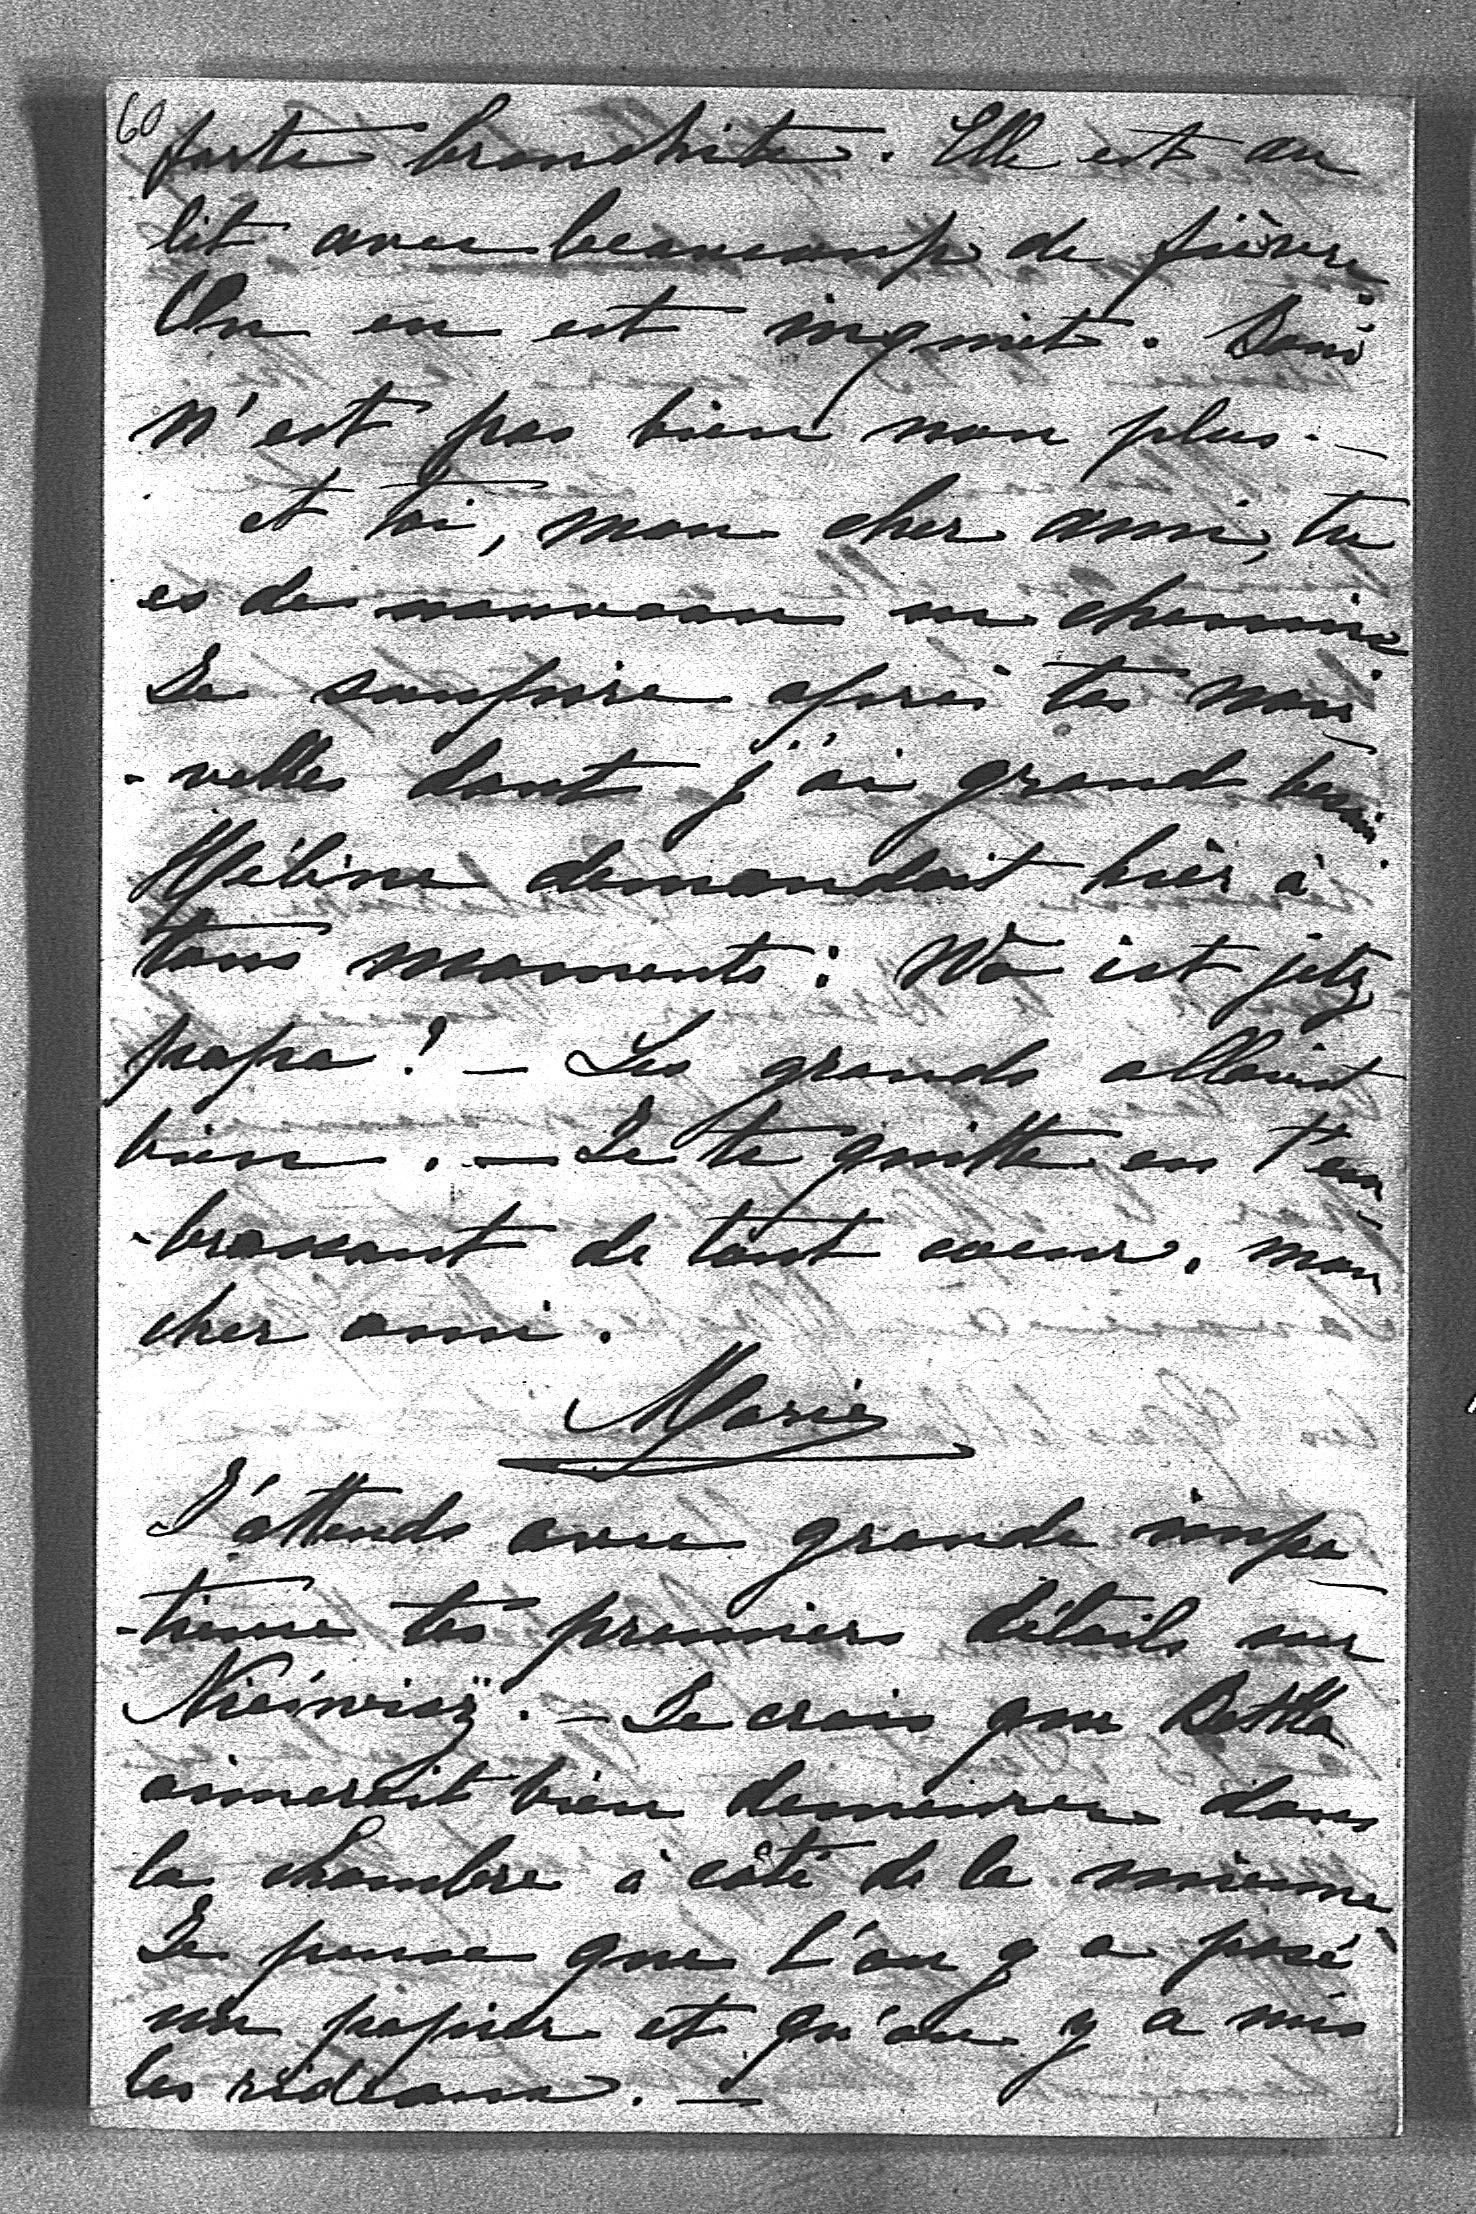 60
forte bronchite. Elle est au
lit avec beaucoup de fièvre.
On en est inquiet. Doni
n'est pas bien non plus. —
et toi, mon cher ami, tu
es de nouveau en chemin
Je soupire après tes nou-
-velles dont j'ai grand besoin.
Hélène demandait hier à
tous moments : Wo ist jetz
papa ? — Les grands allaient
bien. — Je te quitte en t'em-
-brassant de tout coeur, mon
cher ami.
Marie
J'attends avec grande impa-
-tience tes premiers détails sur
Nieświaz. — Je crois que
aimerait bien demeurer dans
la chambre à côté de la mienne.
Je pense que l'on y a posé
un papier et qu'on y a mis
les rideaux. —